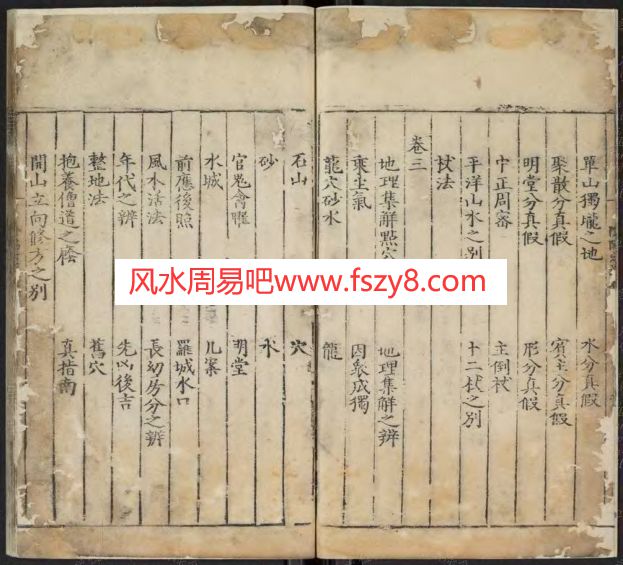 單山獨壠之地 水分真假
聚散分真假 賓主分真假
明堂分真假 形分真假
中正周審 主倒杖
平洋山水之別 十二杖之別
杖法
卷三
地理集解點穴 地理集解之辨
乘生氣 因衆成獨
龍穴砂水 龍
石山 穴
砂 水
官鬼禽曜 明堂
水城 几案
前應後照 羅城水口
風水活法 長幼房分之辨
年代之辨 先凶後吉
整地法 舊穴
抱養僧道之蔭 真指南
開山立向修方之別
风水周易吧www.fszy8.com